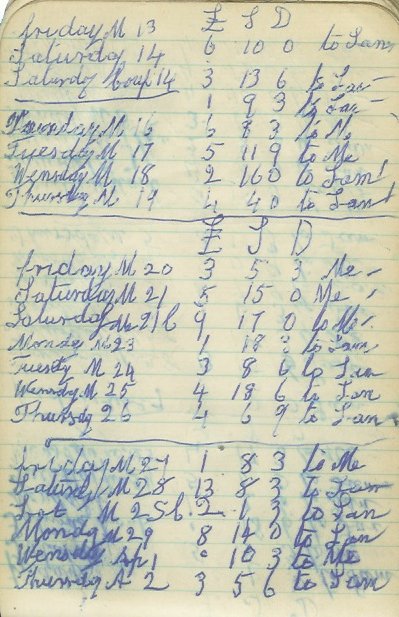 £ S D
friday M 13 6 10 0 to Sam
Saturday 14 3 13 6 to Sam
Saturday 14 1 9 3 to Sam
M 16 6 8 3 to Me
Tuesday M 17 5 11 9 to Me
Wensday M 18 2 16 0 to Sam
Thursday M 19 4 4 0 to Sam
£ S D
friday M 20 3 5 3 Me
Saturday M 21 5 15 0 Me
Saturday 21 9 17 0 to Me
Monday M 23 1 18 to Sam
Tuesdy M 24 3 8 6 to Sam
Wensdy M 25 4 18 6 to Sam
Thursdy 26 4 6 9 to Sam
friday M 27 1 8 3 to Me
Saturdy M 28 13 8 3 to Sam
Sat M 28 2 1 3 to Sam
Mondy M 29 8 14 0 to Sam
Wensdy Ap 1 10 3 to Me
Thursdy A 2 3 5 6 to Sam